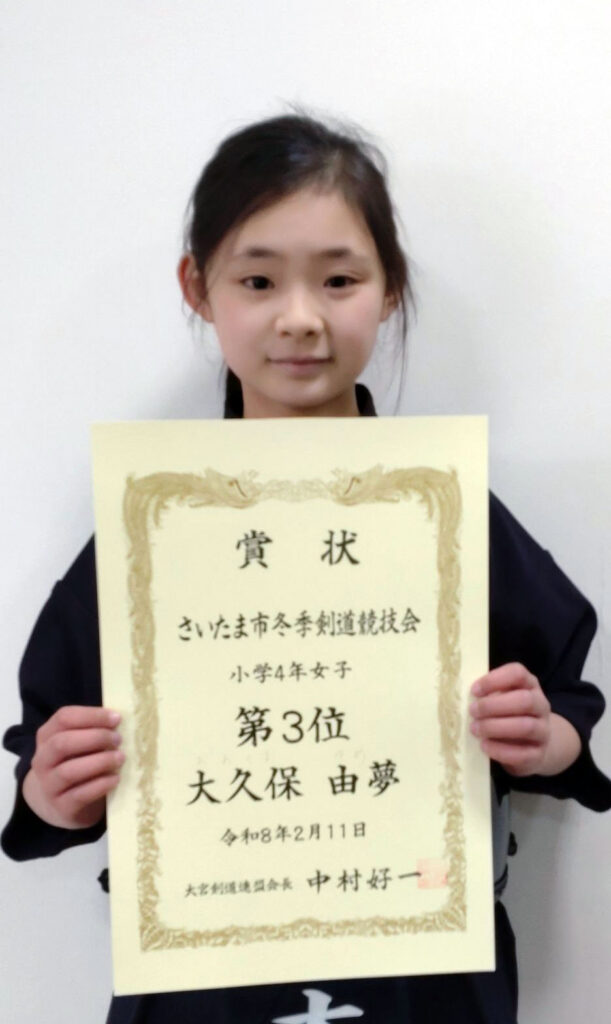 賞 状
さいたま市冬季剣道競技会
小学4年女子
第3位
大久保 由夢
令和8年2月11日
大宮剣道連盟会長 中村好一